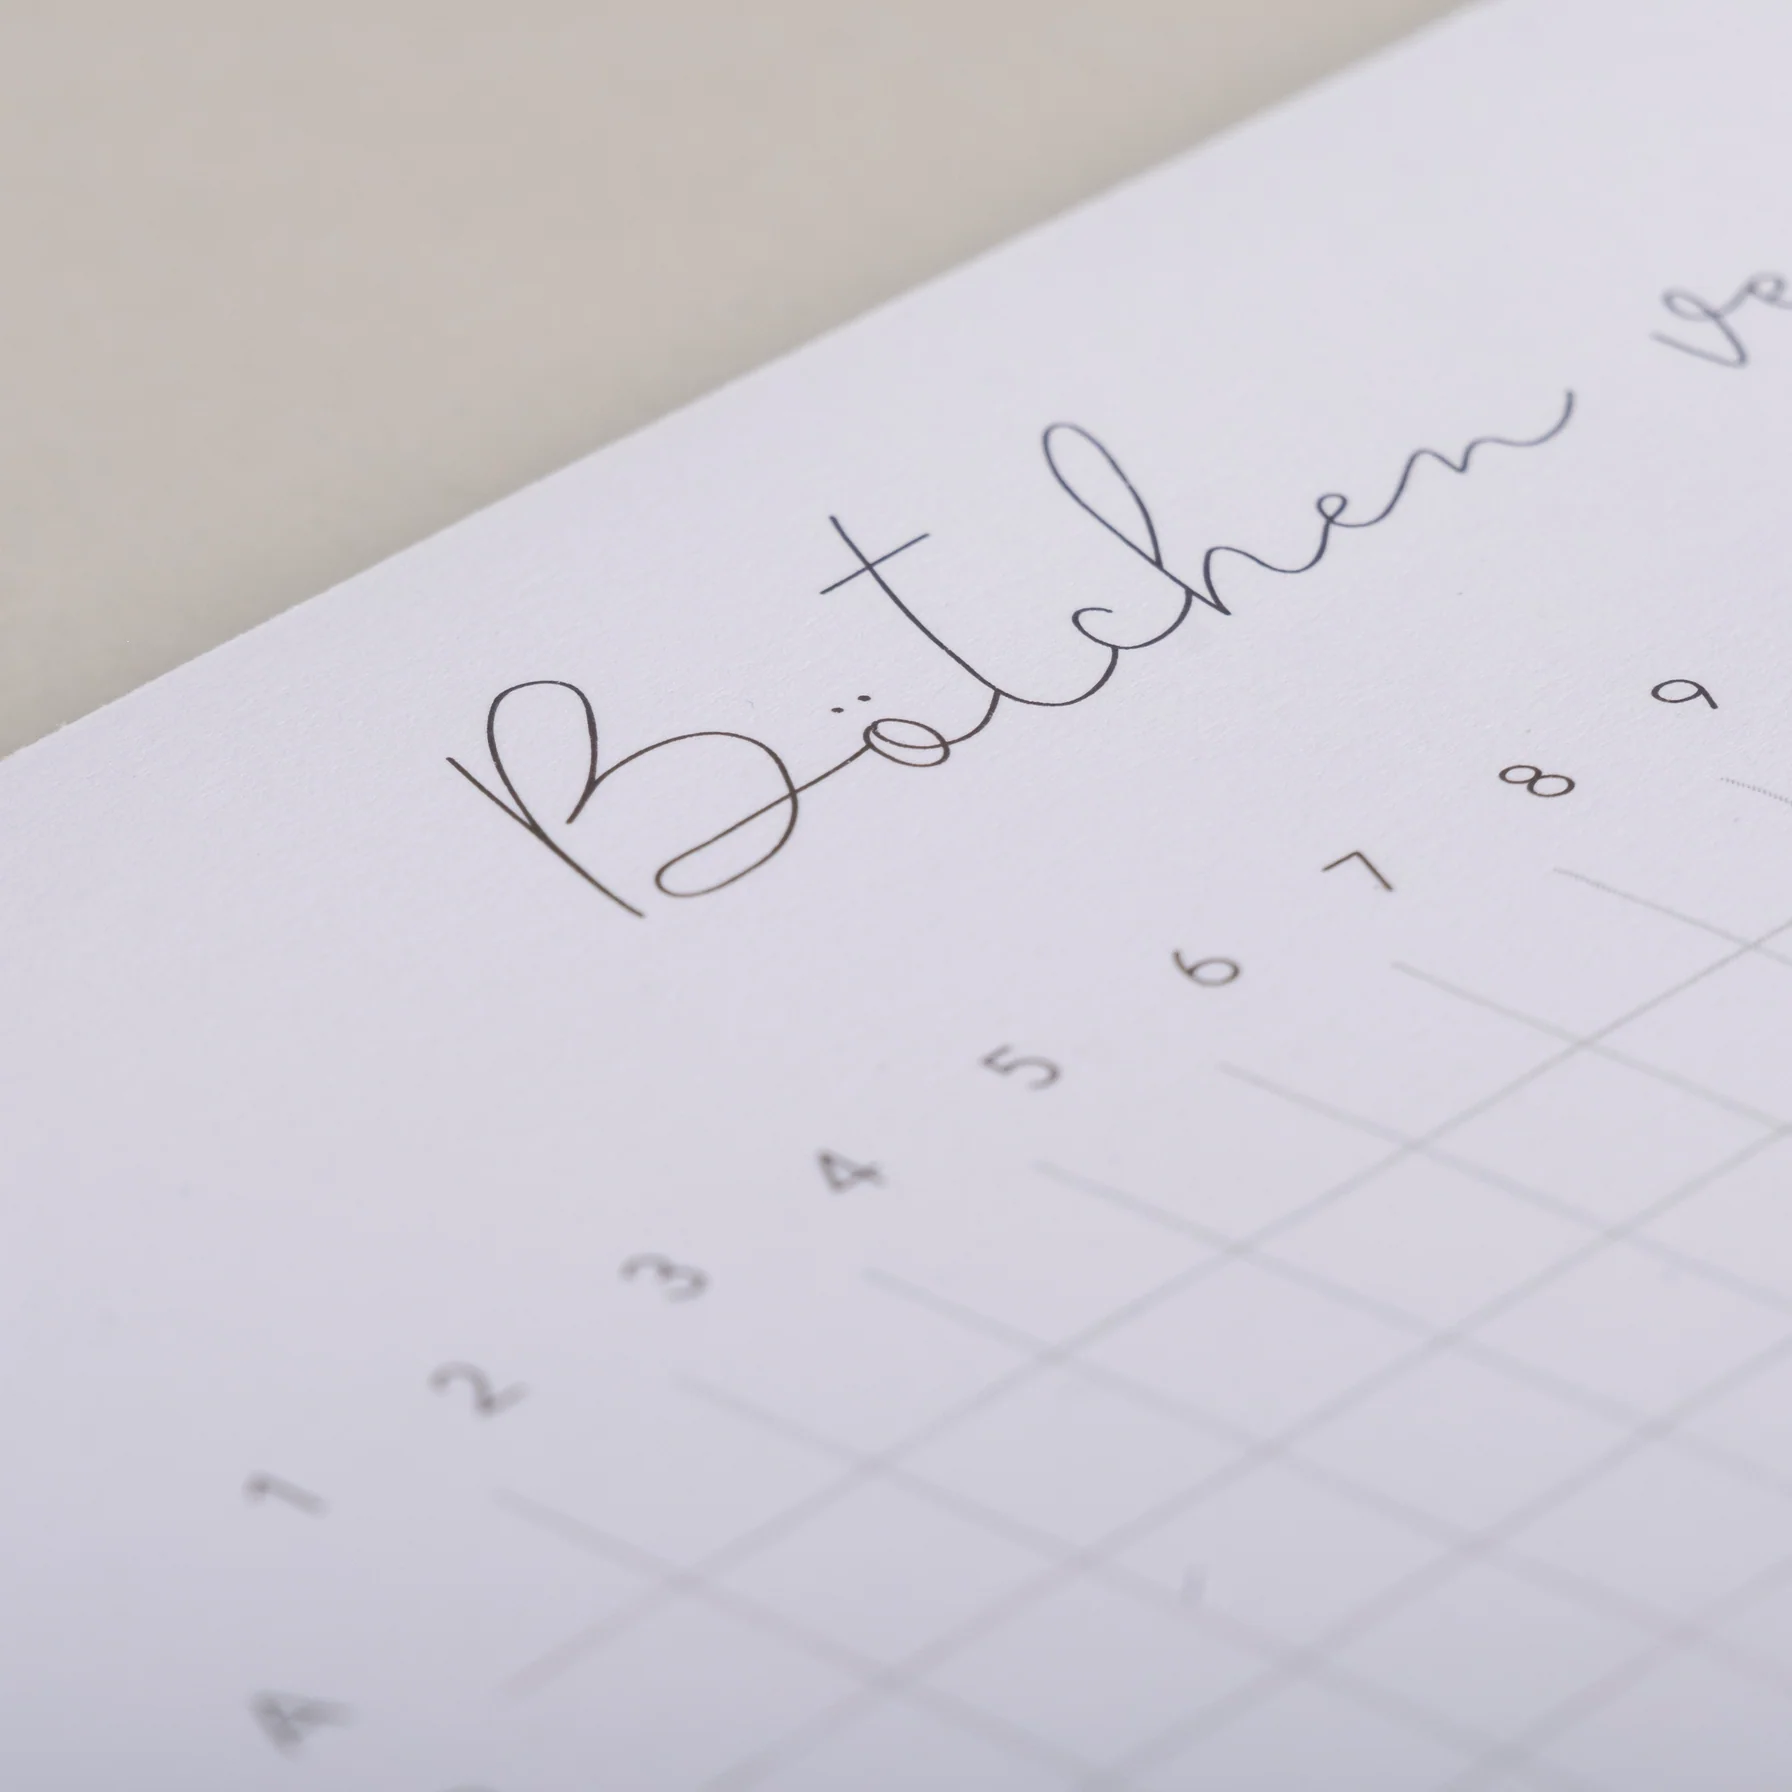 Bötchen ve
1 2 3 4 5 6 7 8 9
A